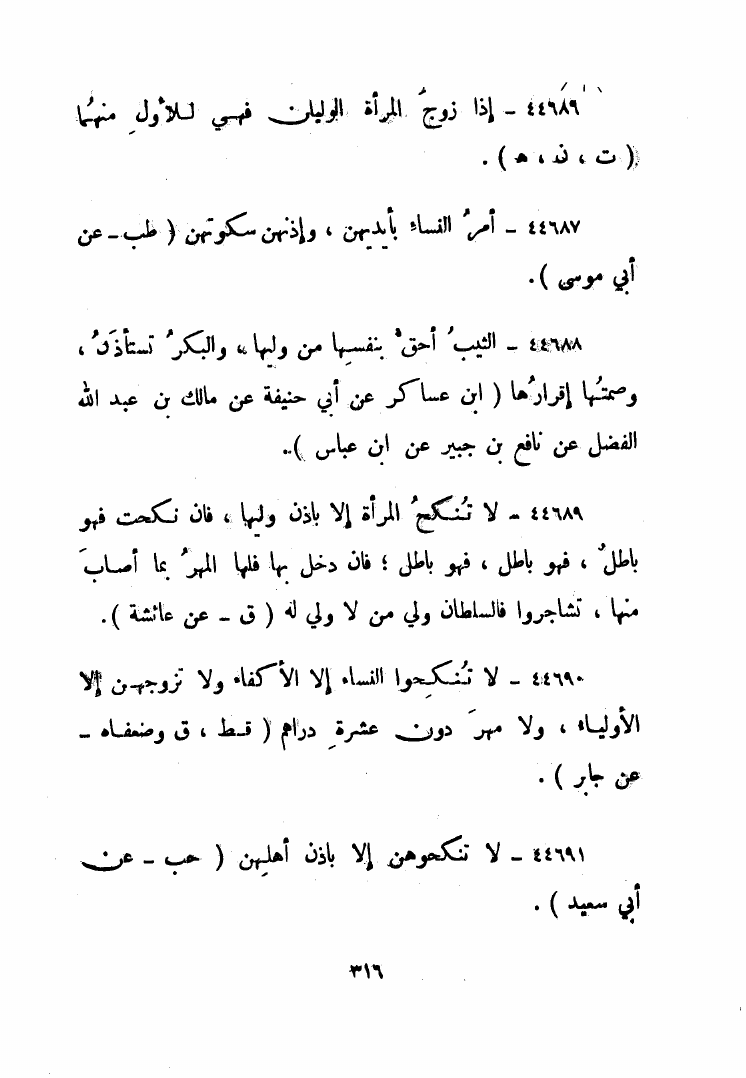 ٤٤٦٨٩ - إذا زوجَ المرأة الوليان فهي للأولِ منهُما
( ت ، ن ، ه ) .
٤٤٦٨٧ - أمرُ النساءِ بأيديهن ، وإذنهن سكوتهن ( طب - عن
أبي موسى ) .
٤٤٦٨٨ - الثيبُ أحقُّ بنفسها من وليها ، والبكرُ تستأذنُ ،
وصمتُها إقرارُها ( ابن عساكر عن أبي حنيفة عن مالك بن عبد الله
الفضل عن نافع بن جبير عن ابن عباس ) .
٤٤٦٨٩ - لا تُنكحُ المرأة إلا باذن وليها ، فان نكحت فهو
باطلٌ ، فهو باطل ، فهو باطل ؛ فان دخل بها فلها المهرُ بما أصابَ
منها ، تشاجروا فالسلطان ولي من لا ولي له ( ق - عن عائشة ) .
٤٤٦٩٠ - لا تُنكِحوا النساء إلا الأكفاء ولا تزوجهن إلا
الأولياء ، ولا مهرَ دون عشرةِ دراهم ( قط ، ق وضعفاه -
عن جابر ) .
٤٤٦٩١ - لا تنكحوهن إلا باذن أهلهن ( حب - عن
أبي سعيد ) .
٣١٦